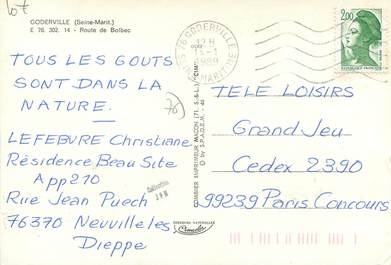 lot
GODERVILLE (Seine-Marit.)
E 76. 302. 14 - Route de Bolbec
TOUS LES GOUTS
SONT DANS LA
NATURE.
LEFEBVRE Christiane
Résidence Beau Site
App 210
Rue Jean Puech
76370 Neuville les
Dieppe
76
Collection
COMBIER IMPRIMEUR MACON (71. S.-L.) "CIM"
© by S.P.A.D.E.M. -
COULEURS NATURELLES
Combier
76 GODERVILLE
12 H
1989
MARITIME
2,00
TELE LOISIRS
Grand Jeu
Cedex 2390
99239 Paris Concours